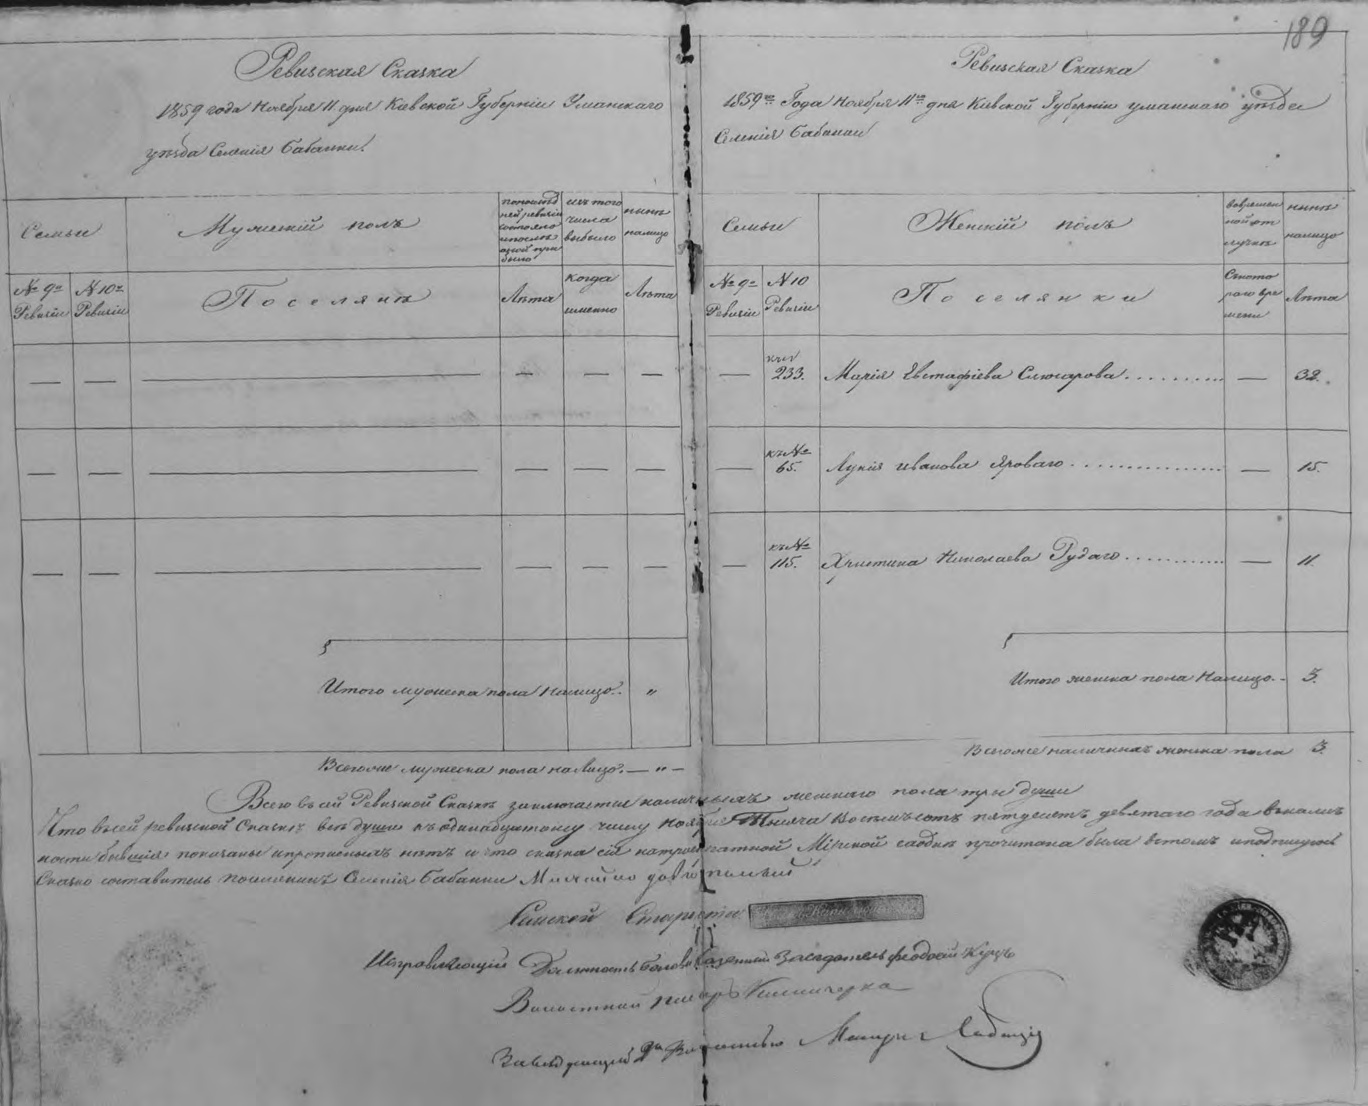 189
Ревизская Сказка
1859 года Ноября 11 дня Кіевской Губерніи Уманскаго
уѣзда Селенія Бабанки.
Семьи
Мужескій полъ
изъ того числа выбыло
нынѣ налицо
№ 9й Ревизіи
№ 10й Ревизіи
Поселянъ
Лѣта
когда именно
Лѣта
Итого мужеска пола Налицо. "
Всего же мужеска пола налицо. — " —
Ревизская Сказка
1859го Года Ноября 11го дня Кіевской Губерніи уманскаго уѣзда
Селенія Бабанки
Семьи
Женскій полъ
во временной отлучкѣ
нынѣ налицо
№ 9й Ревизіи
№ 10 Ревизіи
Поселянки
Съ котораго времени
Лѣта
къ № 233. Марія Евстафіева Слюсарова — 32.
къ № 65. Лукія Иванова Яроваго — 15.
къ № 115. Христина Николаева Рудаго — 11.
Итого женска пола Налицо. 3.
Всего же наличныхъ женска пола 3.
Всего въ сей Ревизской Сказкѣ заключается наличныхъ женскаго пола три души
Что въ сей ревизской Сказкѣ всѣ души къ одинадцатому числу Ноября Тысяча Восемьсотъ пятдесятъ девятаго года въ налич
ности бывшія показаны и прописныхъ нѣтъ и что сказка сія на Мірской сходкѣ прочитана была въ томъ и подпишусь
Сказко составитель поселянинъ Селенія Бабанки
Сельской Староста
Исправляющій Должность Головы Засѣдатель Феодосій
Волостный писарь
Завѣдующій Волостью